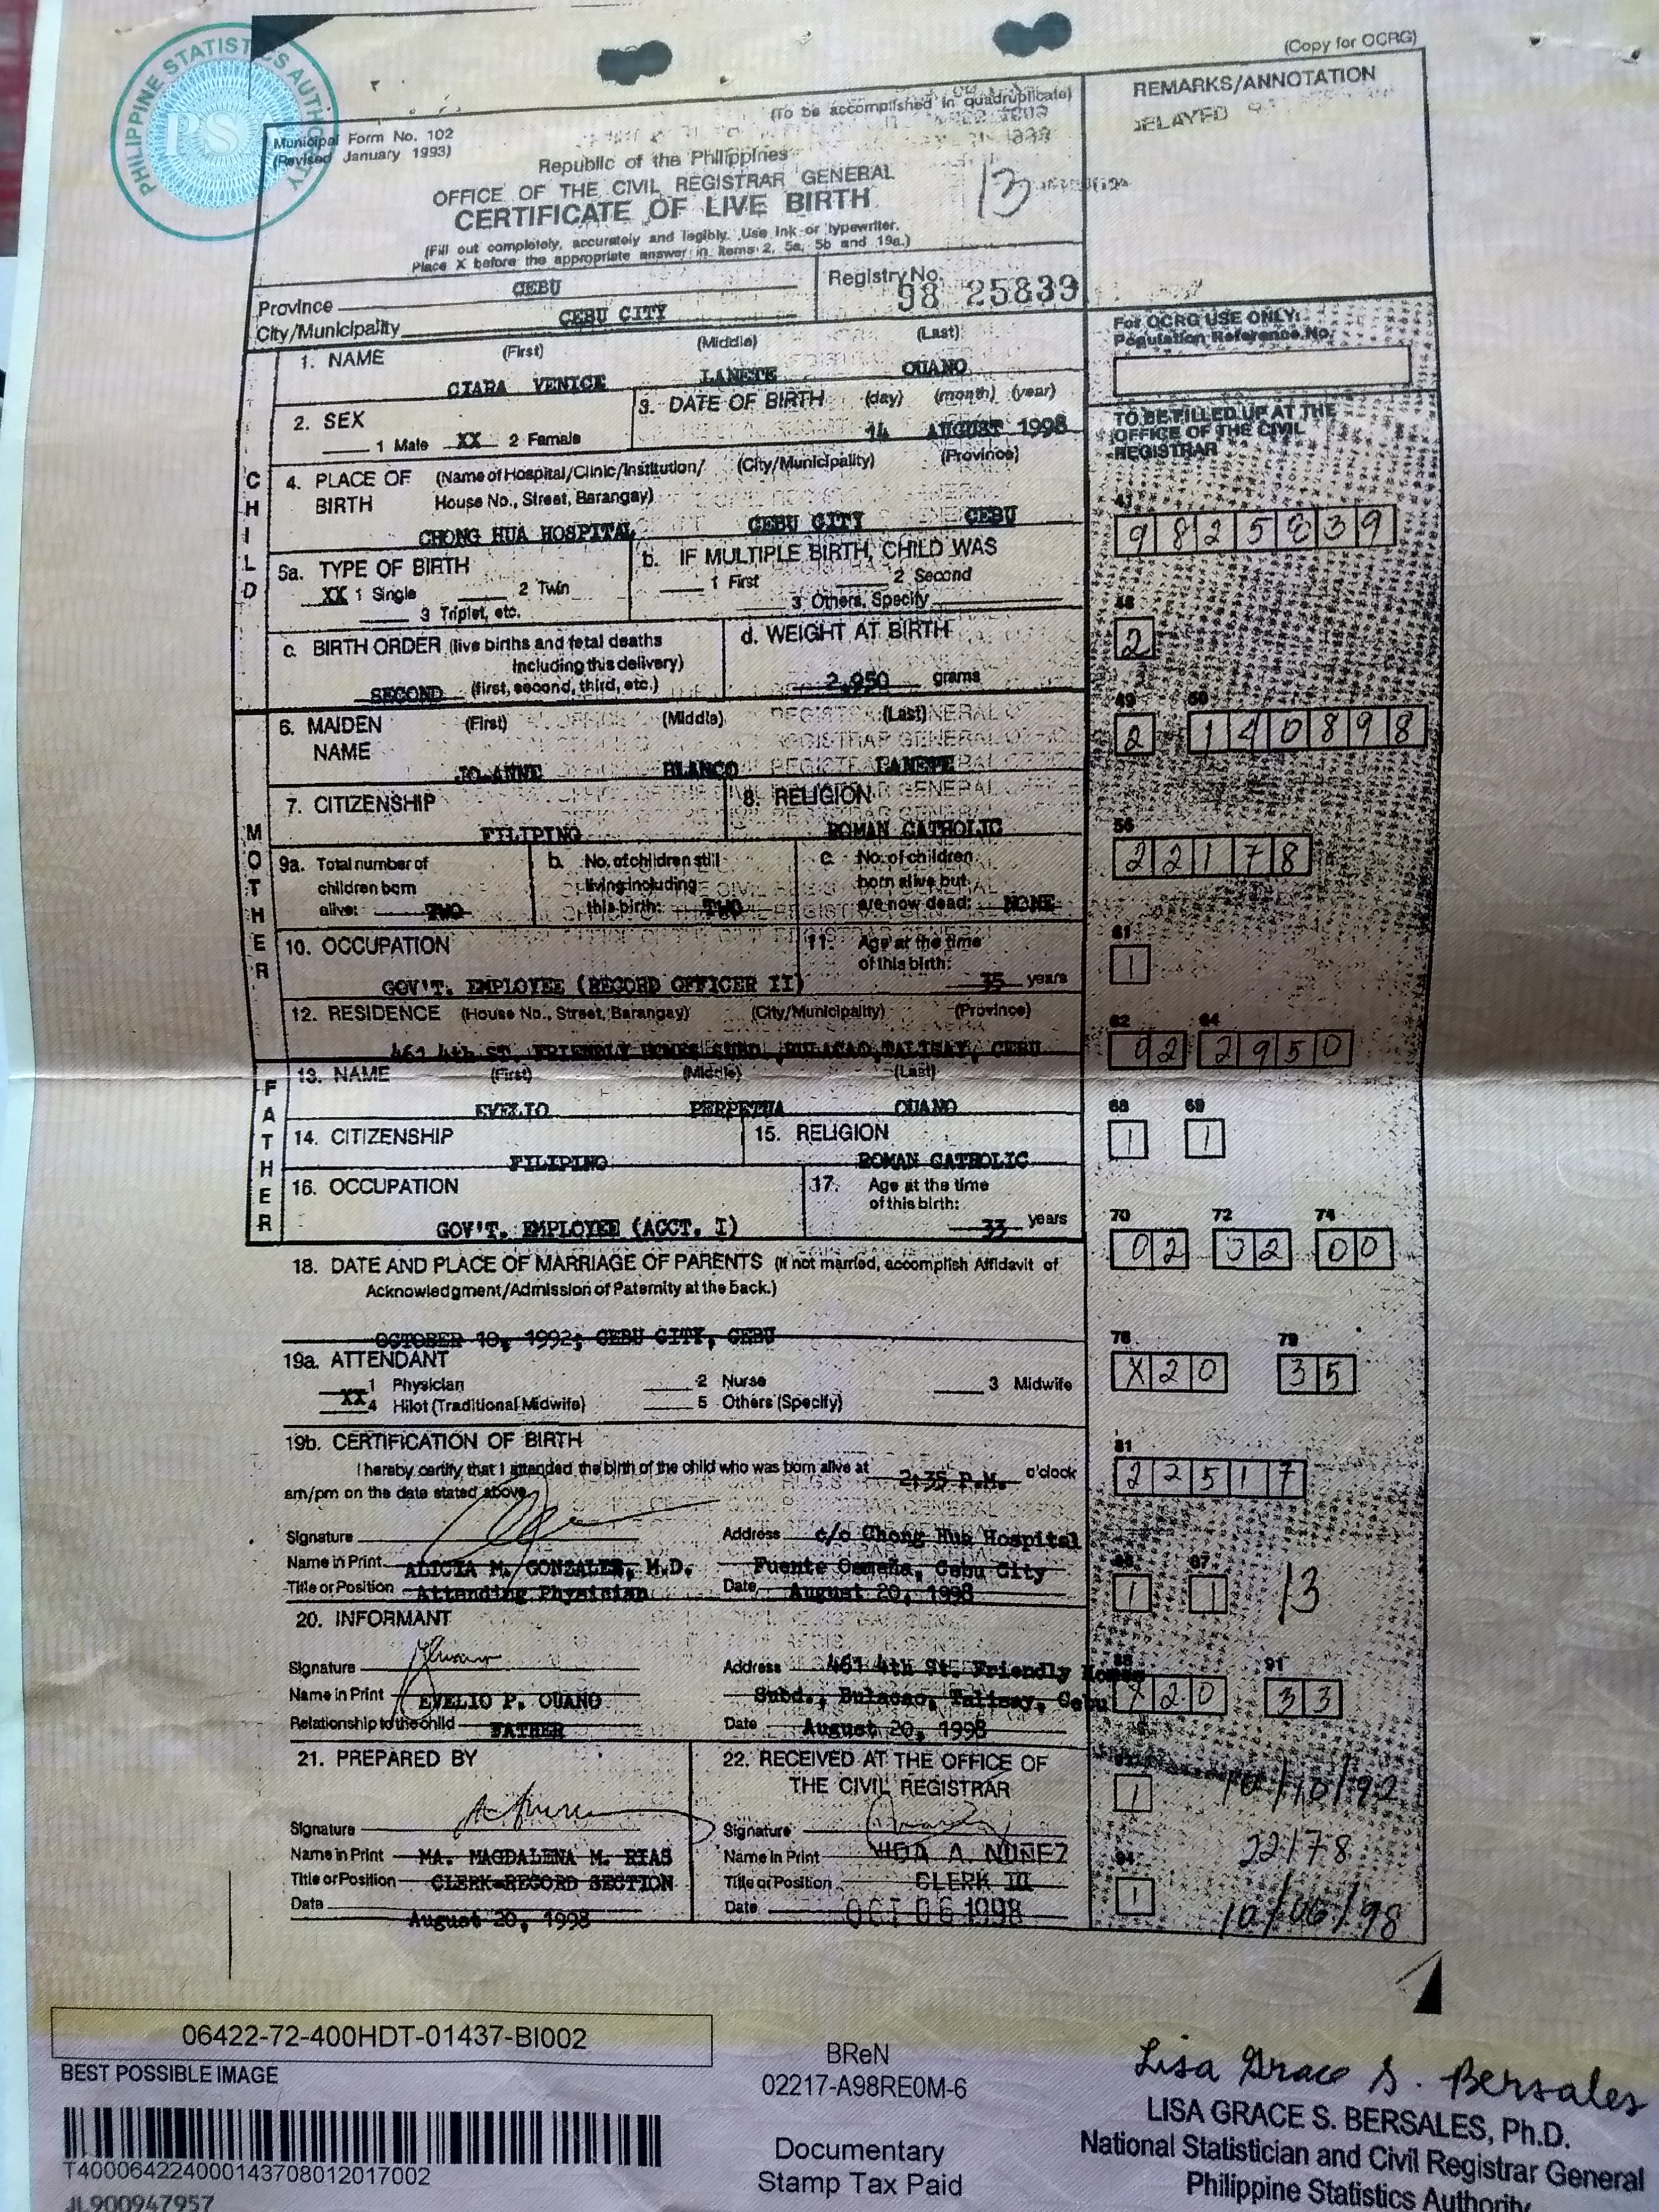 (Copy for OCRG)
PHILIPPINE STATISTICS AUTHORITY
PS
Municipal Form No. 102
(Revised January 1993)
(To be accomplished in quadruplicate)
REMARKS/ANNOTATION
DELAYED
Republic of the Philippines
OFFICE OF THE CIVIL REGISTRAR GENERAL
CERTIFICATE OF LIVE BIRTH
13
(Fill out completely, accurately and legibly. Use ink or typewriter.
Place X before the appropriate answer in items 2, 5a, 5b and 19a.)
Province CEBU
City/Municipality CEBU CITY
Registry No. 98 25839
For OCRG USE ONLY:
Population Reference No.
1. NAME (First) (Middle) (Last)
CIARA VENICE LANETE OUANO
2. SEX
1 Male XX 2 Female
3. DATE OF BIRTH (day) (month) (year)
14 AUGUST 1998
TO BE FILLED UP AT THE
OFFICE OF THE CIVIL
REGISTRAR
CHILD
4. PLACE OF BIRTH (Name of Hospital/Clinic/Institution/ House No., Street, Barangay) (City/Municipality) (Province)
CHONG HUA HOSPITAL CEBU CITY CEBU
41
9825839
5a. TYPE OF BIRTH
XX 1 Single 2 Twin
3 Triplet, etc.
b. IF MULTIPLE BIRTH, CHILD WAS
1 First 2 Second
3 Others, Specify
48
2
c. BIRTH ORDER (live births and fetal deaths
including this delivery)
SECOND (first, second, third, etc.)
d. WEIGHT AT BIRTH
2,950 grams
49 50
2 140898
MOTHER
6. MAIDEN NAME (First) (Middle) (Last)
JO-ANNE BLANCO LANETE
7. CITIZENSHIP
FILIPINO
8. RELIGION
ROMAN CATHOLIC
56
22178
9a. Total number of
children born
alive: TWO
b. No. of children still
living including
this birth: TWO
c. No. of children
born alive but
are now dead: NONE
10. OCCUPATION
GOV'T. EMPLOYEE (RECORD OFFICER II)
11. Age at the time
of this birth: 35 years
61
1
12. RESIDENCE (House No., Street, Barangay) (City/Municipality) (Province)
461 4th ST. FRIENDLY HOMES SUBD., BULACAO, TALISAY, CEBU
62 64
02 2950
FATHER
13. NAME (First) (Middle) (Last)
EVELIO PERPETUA OUANO
68 69
1 1
14. CITIZENSHIP
FILIPINO
15. RELIGION
ROMAN CATHOLIC
16. OCCUPATION
GOV'T. EMPLOYEE (ACCT. I)
17. Age at the time
of this birth:
33 years
70 72 74
02 02 00
18. DATE AND PLACE OF MARRIAGE OF PARENTS (If not married, accomplish Affidavit of
Acknowledgment/Admission of Paternity at the back.)
OCTOBER 10, 1992; CEBU CITY, CEBU
76 79
X20 35
19a. ATTENDANT
XX 1 Physician 2 Nurse 3 Midwife
4 Hilot (Traditional Midwife) 5 Others (Specify)
19b. CERTIFICATION OF BIRTH
I hereby certify that I attended the birth of the child who was born alive at 2:35 P.M. o'clock
am/pm on the date stated above.
81
22517
Signature
Name in Print ALICIA M. GONZALES, M.D.
Title or Position Attending Physician
Address c/o Chong Hua Hospital
Fuente Osmeña, Cebu City
Date August 20, 1998
86 87
1 1 13
20. INFORMANT
Signature
Name in Print EVELIO P. OUANO
Relationship to the child FATHER
Address 461 4th St. Friendly Homes
Subd., Bulacao, Talisay, Cebu
Date August 20, 1998
88 91
X20 33
21. PREPARED BY
Signature
Name in Print MA. MAGDALENA M. RIAS
Title or Position CLERK-RECORD SECTION
Date August 20, 1998
22. RECEIVED AT THE OFFICE OF
THE CIVIL REGISTRAR
Signature
Name in Print A. NUÑEZ
Title or Position CLERK III
Date OCT 06 1998
1 10/10/92
22178
94
1
10/06/98
06422-72-400HDT-01437-BI002
BEST POSSIBLE IMAGE
T400064224000143708012017002
JL900947957
BReN
02217-A98RE0M-6
Documentary
Stamp Tax Paid
Lisa Grace S. Bersales
LISA GRACE S. BERSALES, Ph.D.
National Statistician and Civil Registrar General
Philippine Statistics Authority